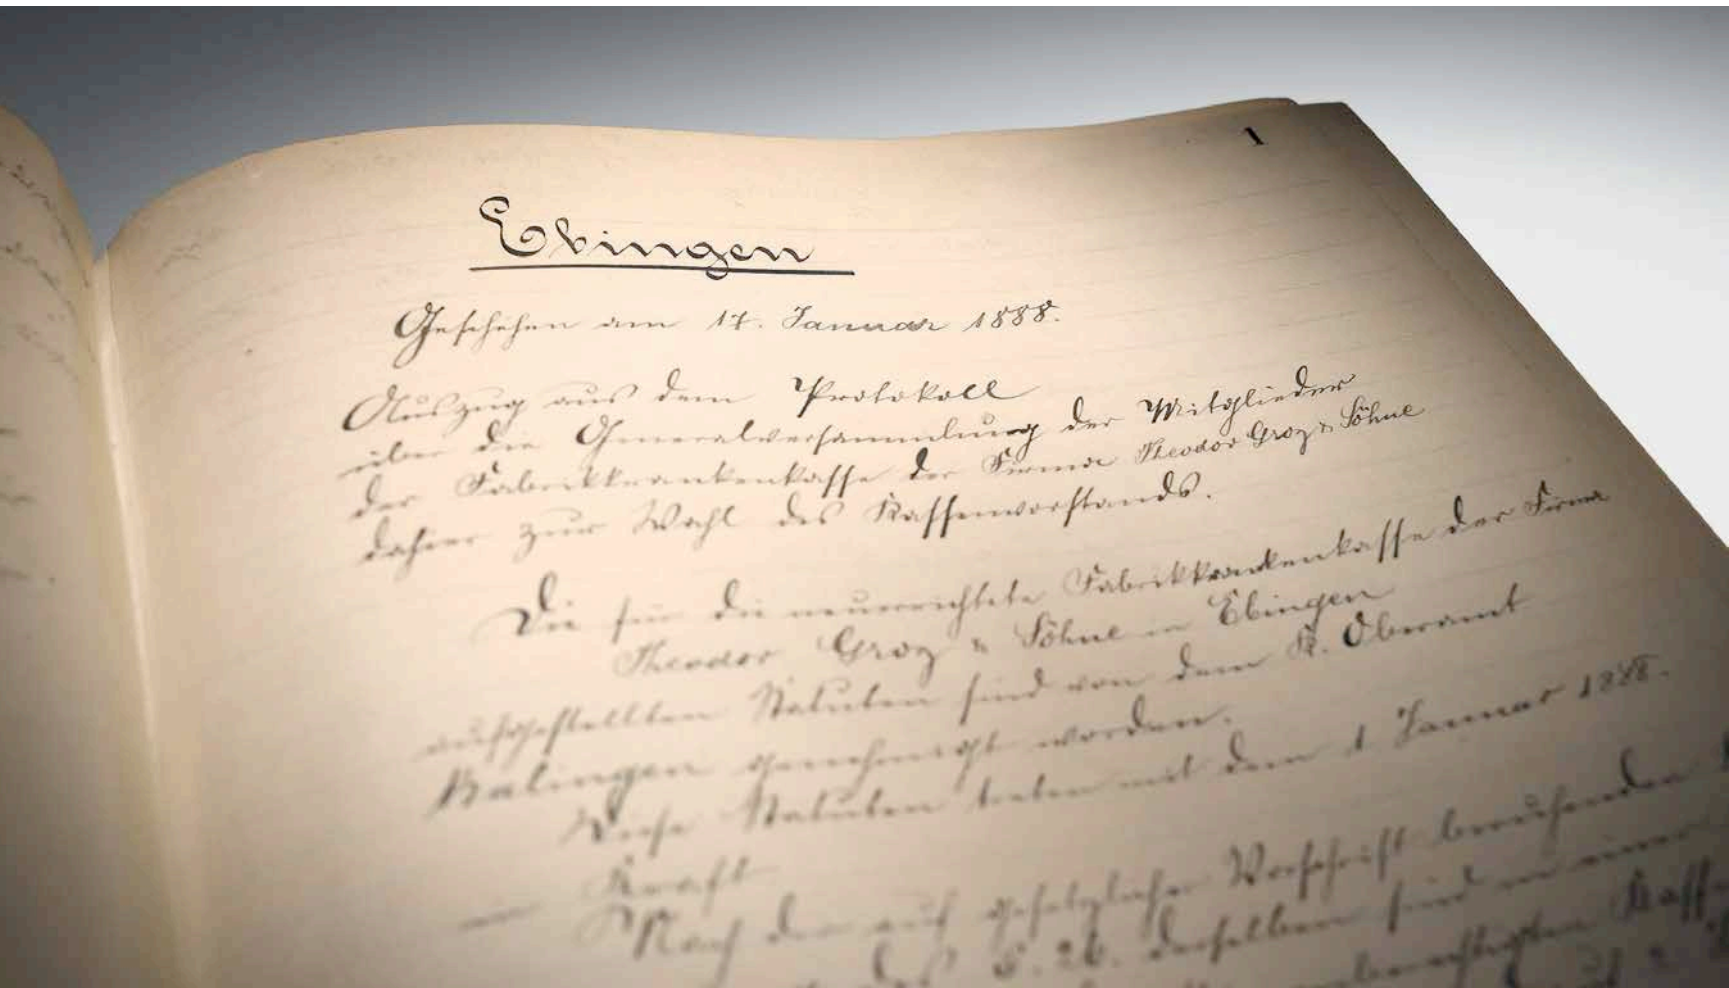 1
Ebingen
Geschehen am 17. Januar 1888.
Auszug aus dem Protokoll
über die Generalversammlung der Mitglieder
der Fabrikkrankenkasse der Firma Theodor Groz & Söhne
daher zur Wahl des Kassenvorstands.
Die für die neuerrichtete Fabrikkrankenkasse der Firma
Theodor Groz & Söhne in Ebingen
aufgestellten Statuten sind von dem K. Oberamt
Balingen genehmigt worden.
Diese Statuten treten mit dem 1 Januar 1888.
in Kraft
Nach der auf gesetzlicher Vorschrift beruhenden
des §. 26. derselben sind in einer